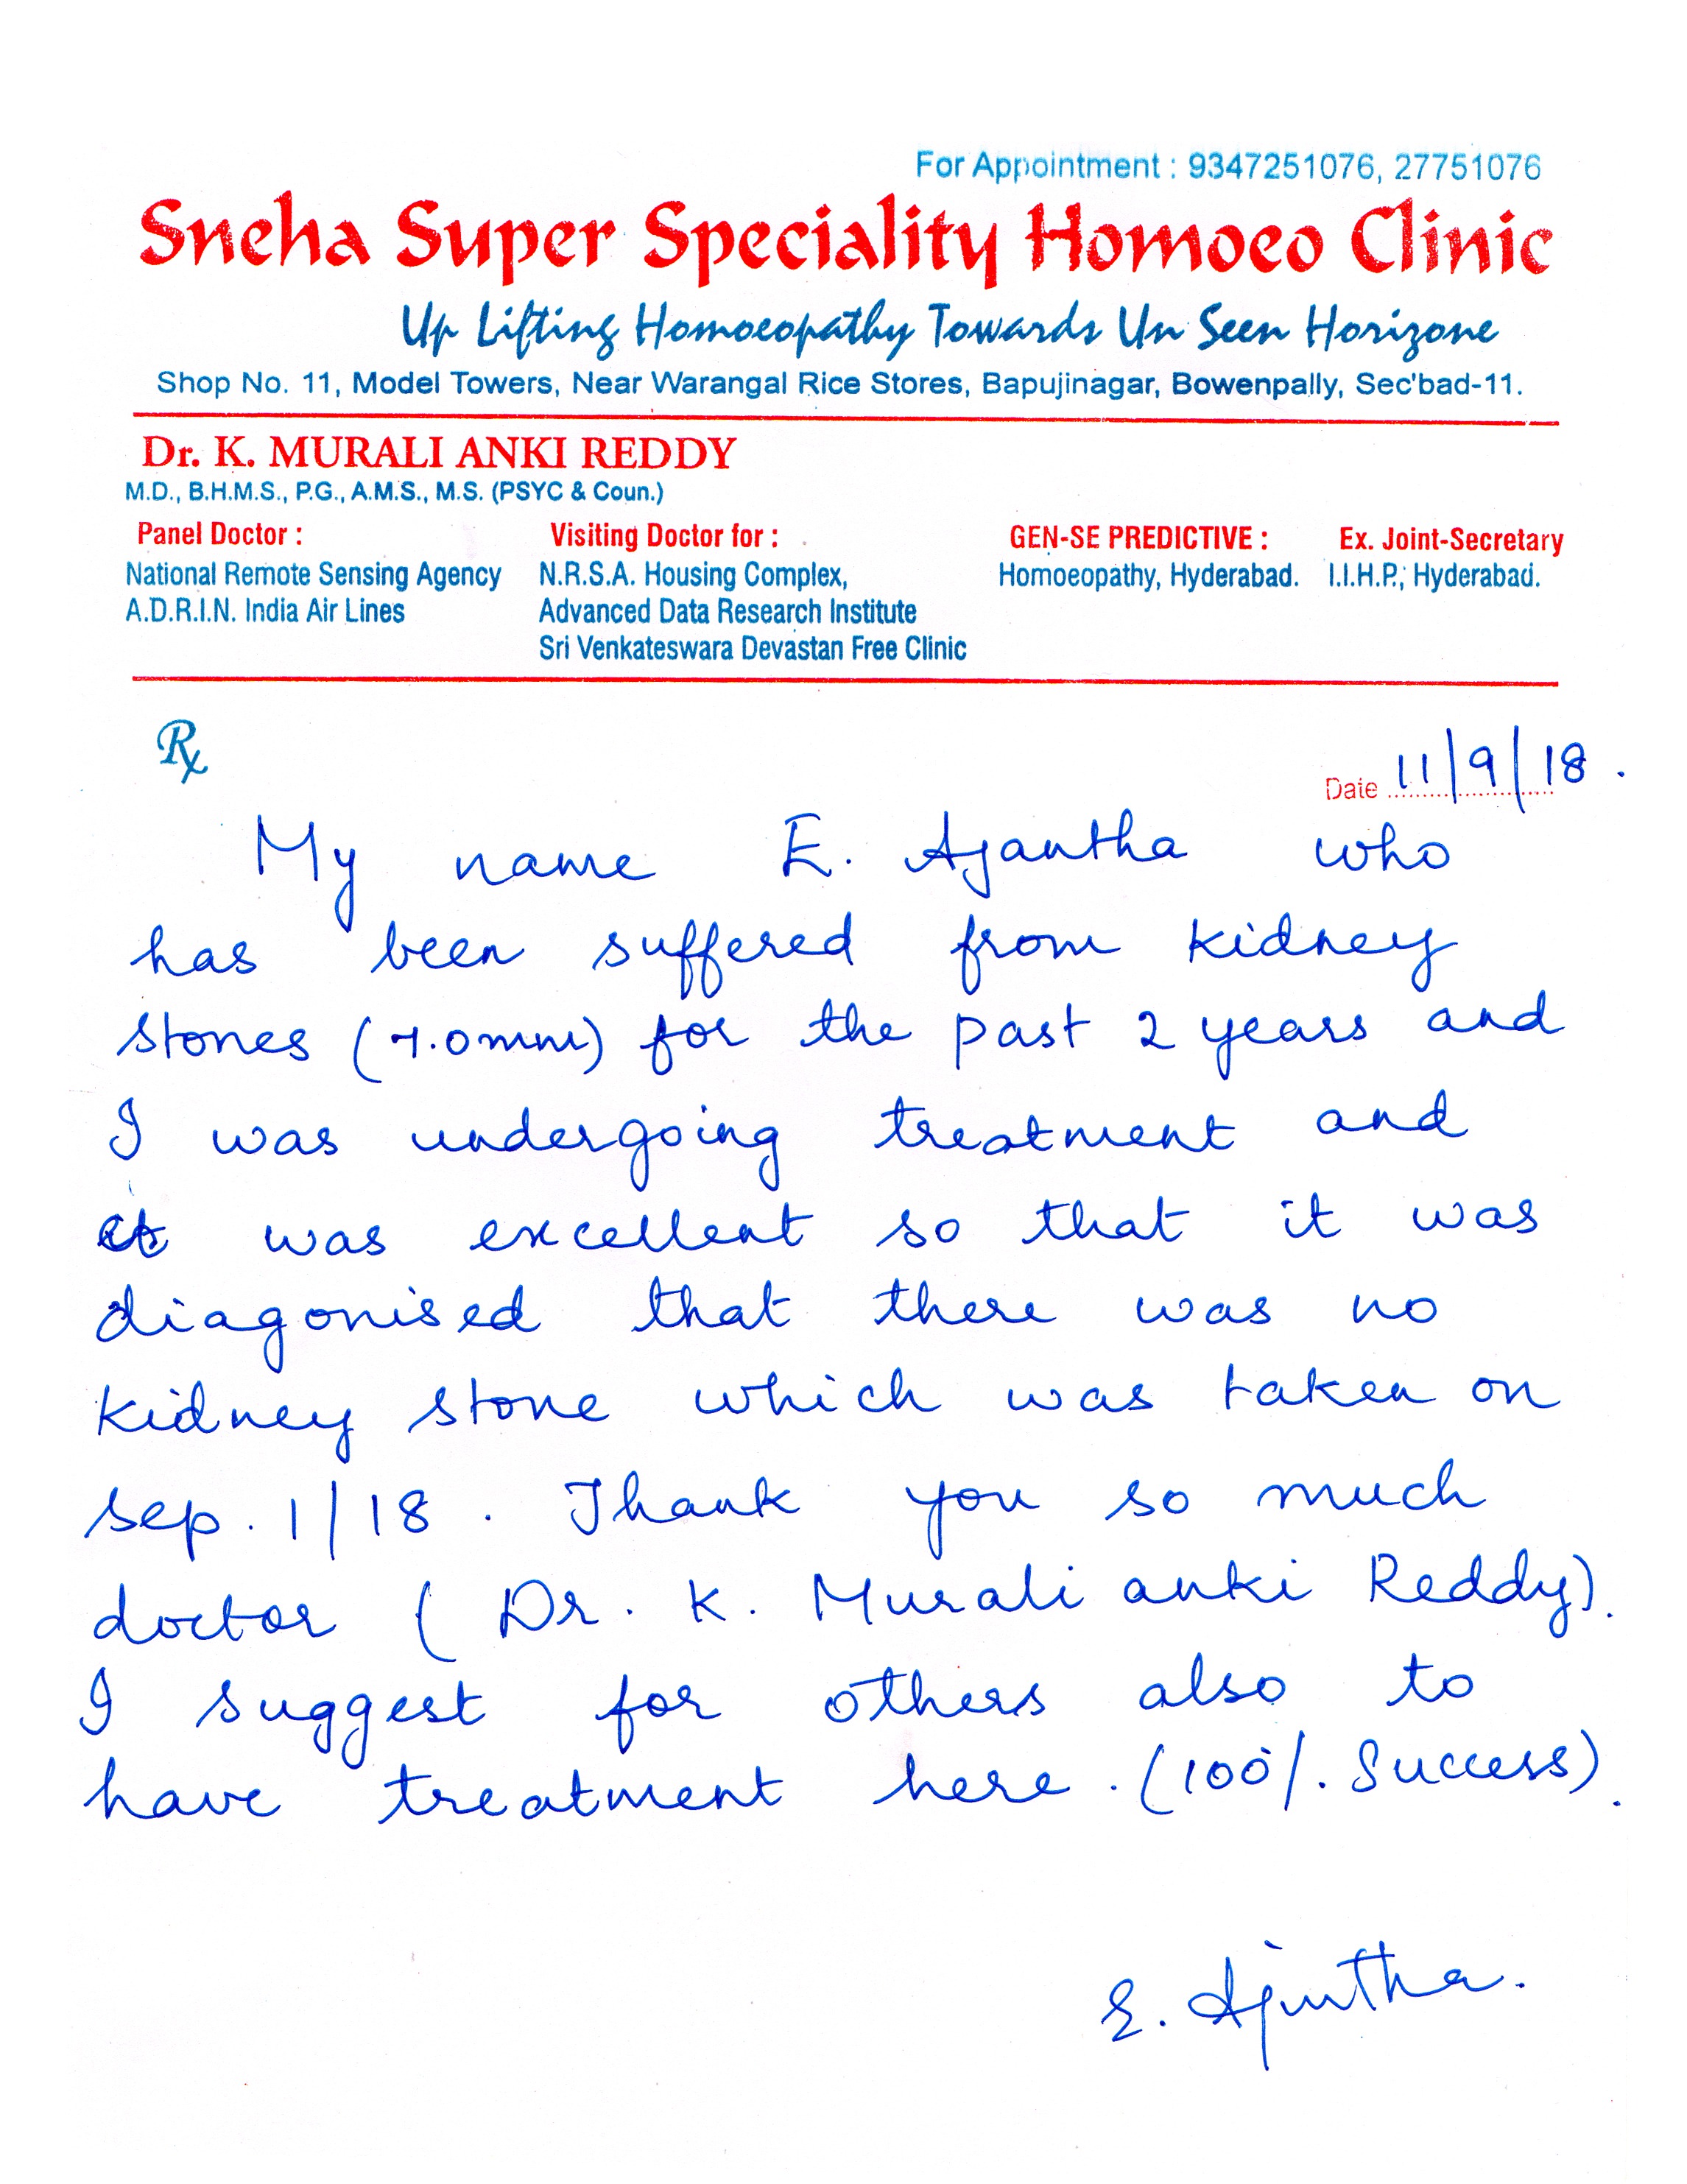 For Appointment : 9347251076, 27751076
Sneha Super Speciality Homoeo Clinic
Up Lifting Homoeopathy Towards Un Seen Horizone
Shop No. 11, Model Towers, Near Warangal Rice Stores, Bapujinagar, Bowenpally, Sec'bad-11.
Dr. K. MURALI ANKI REDDY
M.D., B.H.M.S., P.G., A.M.S., M.S. (PSYC & Coun.)
Panel Doctor :
National Remote Sensing Agency
A.D.R.I.N. India Air Lines
Visiting Doctor for :
N.R.S.A. Housing Complex,
Advanced Data Research Institute
Sri Venkateswara Devastan Free Clinic
GEN-SE PREDICTIVE :
Homoeopathy, Hyderabad.
Ex. Joint-Secretary
I.I.H.P., Hyderabad.
Rx
Date 11/9/18.
My name E. Ajantha who
has been suffered from kidney
stones (7.0mm) for the past 2 years and
I was undergoing treatment and
it was excellent so that it was
diagonised that there was no
kidney stone which was taken on
sep. 1/18. Thank you so much
doctor (Dr. K. Murali anki Reddy).
I suggest for others also to
have treatment here. (100%. Success).
E. Ajantha.